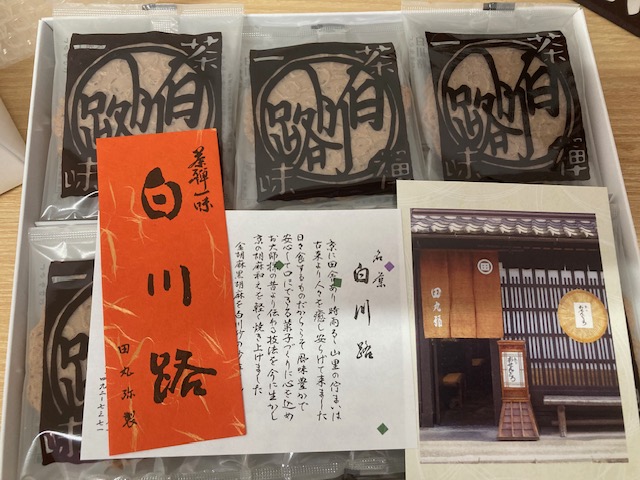 茶禅一味
白川路
茶禅一味
白川路
茶禅一味
白川路
茶禅一味
白川路
田丸弥製
名菓
白川路
京に田舎あり 時雨るゝ山里の佇まいは
古来より人々を癒し安らげて来ました
日々食するものだからこそ風味豊かで
安心して口にできる菓子づくりに心を込め
お大師様の昔より伝わる技法を今に生かし
京の胡麻和えを軽く焼き上げました
金胡麻黒胡麻を白川
四九一-七三七一
田丸弥